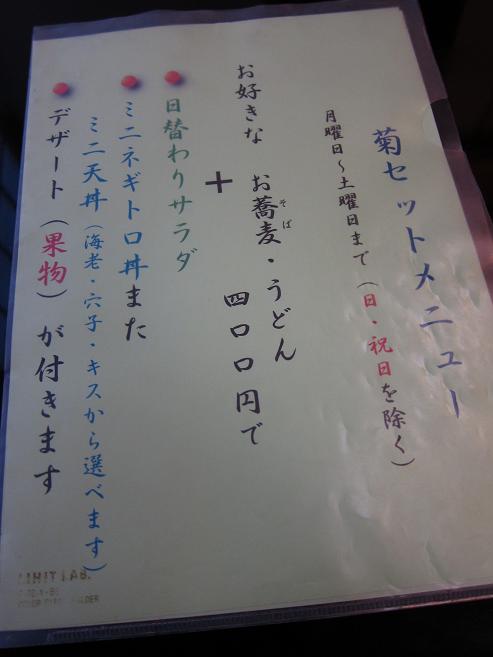 菊セットメニュー
月曜日~土曜日まで(日・祝日を除く)
お好きな お蕎麦・うどん
そば
+ 四〇〇円で
日替わりサラダ
ミニネギトロ丼また
ミニ天丼(海老・穴子・キスから選べます)
デザート(果物)が付きます
LIHIT LAB.